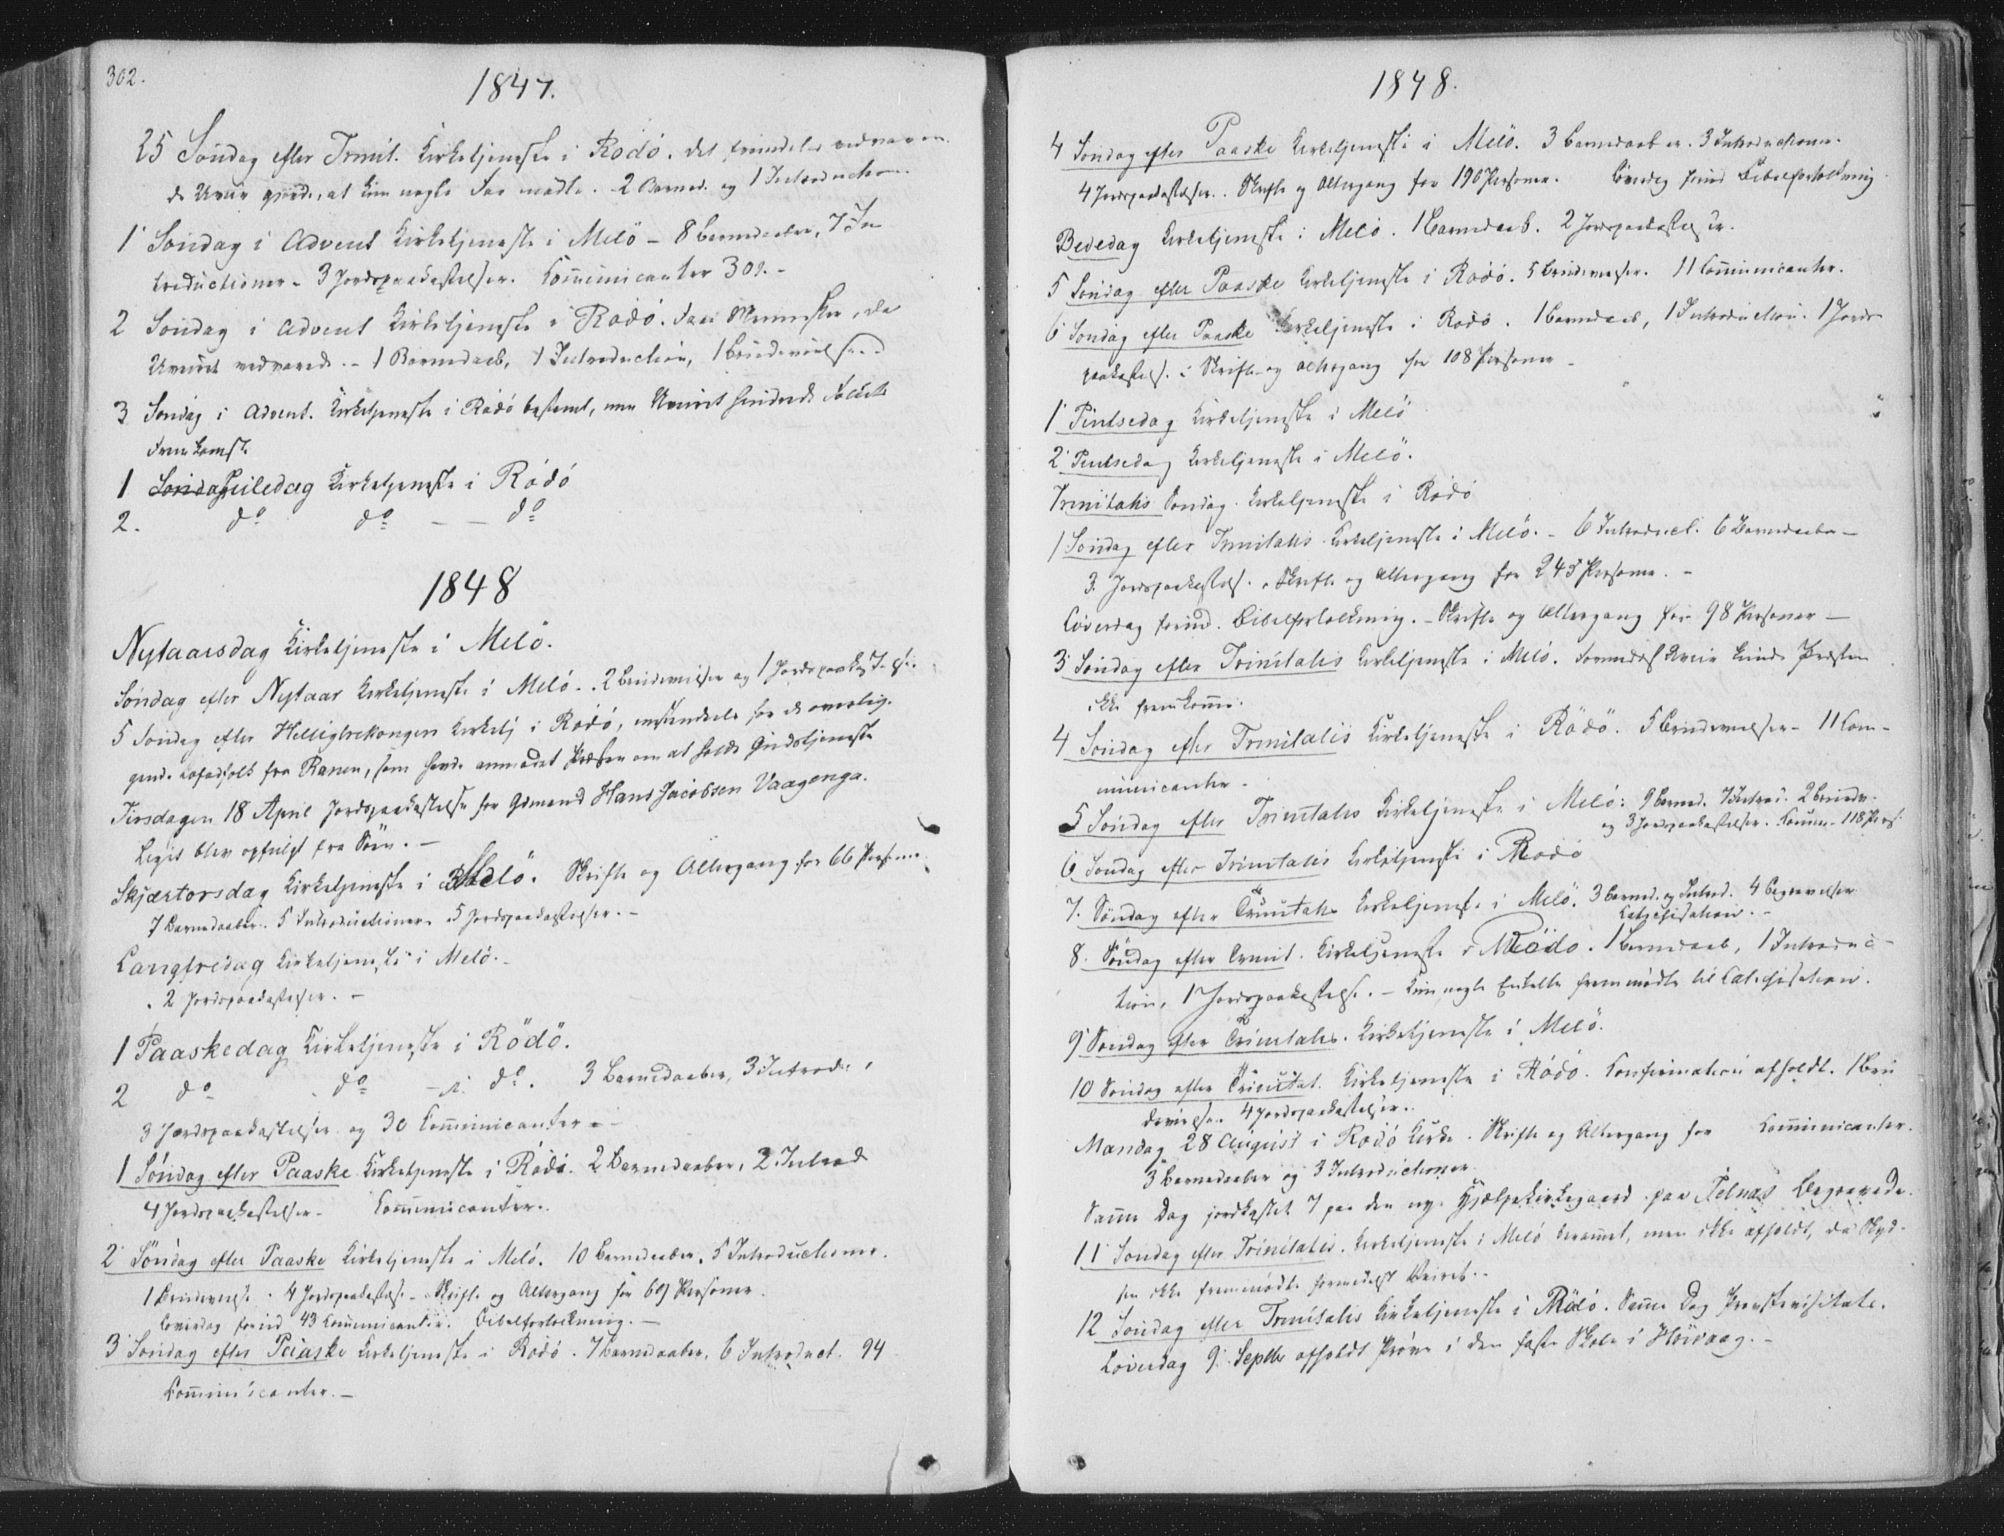 302.
1847.
25 Søndag efter Trinit. Kirketjeneste i Rødø. det fremdeles vedvaren
de Uveir gjorde, at kun nogle faa mødte. 2 Barned. og 1 Introduction.
1 Søndag i Advent Kirketjeneste i Melö – 8 Barnedaabe, 7 In
troductioner – 3 Jordspaakastelser. Com̄unicanter 309. –
2 Søndag i Advent Kirketjeneste i Rødø. faa Mennesker, da
Uveiret vedvarede. – 1 Barnedaab, 1 Introduction, 1 Brudevielse.
3 Søndag i Advent. Kirketjeneste i Rødø bestemt, men Uveiret hindrede Folkets
Fremkomst.
1 Søndag Juledag Kirketjeneste i Rødö
2. do do – – do
1848
Nytaarsdag Kirketjeneste i Melö.
Søndag efter Nytaar Kirketjeneste i Melö. 2 Brudevielser og 1 Jordspaakastelse.
5 Søndag efter Helligtrekonger Kirketj i Rødø, for de overlig-
gende Lofotfolk fra Ranen, som havde anmodet Præsten om at holde Gudstjeneste
Tirsdagen 18 April Jordspaakastelse for Gdmand Hans Jacobsen Vaagenga.
Liget blev opfulgt fra Søen. –
Skjærtorsdag Kirketjeneste i Melö. Skrifte og Altergang for 66 Personer
7 Barnedaaber. 5 Introductioner. 5 Jordspaakastelser. –
Langfredag Kirketjeneste i Melö. –
2 Jordspaakastelser. –
1 Paaskedag Kirketjeneste i Rödö.
2 do do – i do. 3 Barnedaaber, 3 Introd.,
3 Jordspaakastelser og 30 Com̄unicanter –
1 Søndag efter Paaske Kirketjeneste i Rödö. 2 Barnedaaber, 2 Introd
4 Jordspaakastelser – Com̄unicanter.
2 Søndag efter Paaske Kirketjeneste i Melö. 10 Barnedaaber, 5 Introductioner.
1 Brudevielse. 4 Jordspaakastelse – Skrifte og Altergang for 69 Personer.
Løverdag forud 43 Communicanter. Bibelforklaring. –
3 Søndag efter Paaske Kirketjeneste i Rødø. 7 Barnedaaber, 6 Introduct. 94
Com̄unicanter. –
1848.
4 Søndag efter Paaske Kirketjeneste i Melö. 3 Barnedaaber. 3 Introductioner.
4 Jordspaakastelser. Skrifte og Altergang for 190 Personer. Løverdag forud Bibelforklaring.
Bededag Kirketjeneste i Melö. 1 Barnedaab. 2 Jordspaakastelser.
5 Søndag efter Paaske Kirketjeneste i Rødö. 5 Brudevielser. 11 Com̄unicanter.
6 Søndag efter Paaske Kirketjeneste i Rødø. 1 Barnedaab, 1 Introduction. 1 Jords
paakastels. i Skrifte og Altergang for 108 Personer –
1 Pintsedag Kirketjeneste i Melö
2 Pintsedag Kirketjeneste i Melö.
Trinitatis Søndag. Kirketjeneste i Rødö
1 Søndag efter Trinitatis Kirketjeneste i Melö. – 6 Introduct. 6 Barnedaabe –
3 Jordspaakastels. Skrifte og Altergang for 245 Personer. –
Löverdag forud. Bibelforklaring. – Skrifte og Altergang for 98 Personer –
3 Søndag efter Trinitatis Kirketjeneste i Melö. Formedelst Uveir kunde Præsten
ikke fremkomme.
4 Søndag efter Trinitatis Kirketjeneste i Rödö. 5 Brudevielser – 11 Com-
municanter –
5 Søndag efter Trinitatis Kirketjeneste i Melö: 9 Barned. 7 Introd. 2 Brudev.
og 3 Jordspaakastelser. Comun – 118 Pers.
6 Søndag efter Trinitatis Kirketjeneste i Rødö
7. Søndag efter Trinitatis Kirketjenest. i Melö. 3 Barned. og Introd. 4 Begravelser
Catechisation. –
8. Søndag efter Trinit. Kirketjeneste i Rödö. 1 Barnedaab, 1 Introduc-
tion, 1 Jordspaakastelse. – Kun nogle Enkelte fremmødte til Catechisation.
9 Søndag efter Trinitatis. Kirketjeneste i Melö.
10 Søndag efter Trinitat. Kirketjeneste i Rødö. Confirmation afholdt. 1 Bru
devielse. 4 Jordspaakastelser.
Mandag 28 August i Rødö Kirke. Skrifte og Altergang for Com̄unicanter.
3 Barnedaaber og 3 Introductioner.
Samme Dag jordkastet 7 paa den nye Hjælpekirkegaard paa Telnæs Begravede.
11 Søndag efter Trinitatis. Kirketjeneste i Melö berammet, men ikke afholdt, da Skyd-
sen ikke fremmødte formedelst Veiret. –
12 Søndag efter Trinitatis Kirketjeneste i Rödö. Samme Dag Provstevisitats.
Løverdag 9 Septbr afholdt Prøve i den faste Skole i Høivaag. –